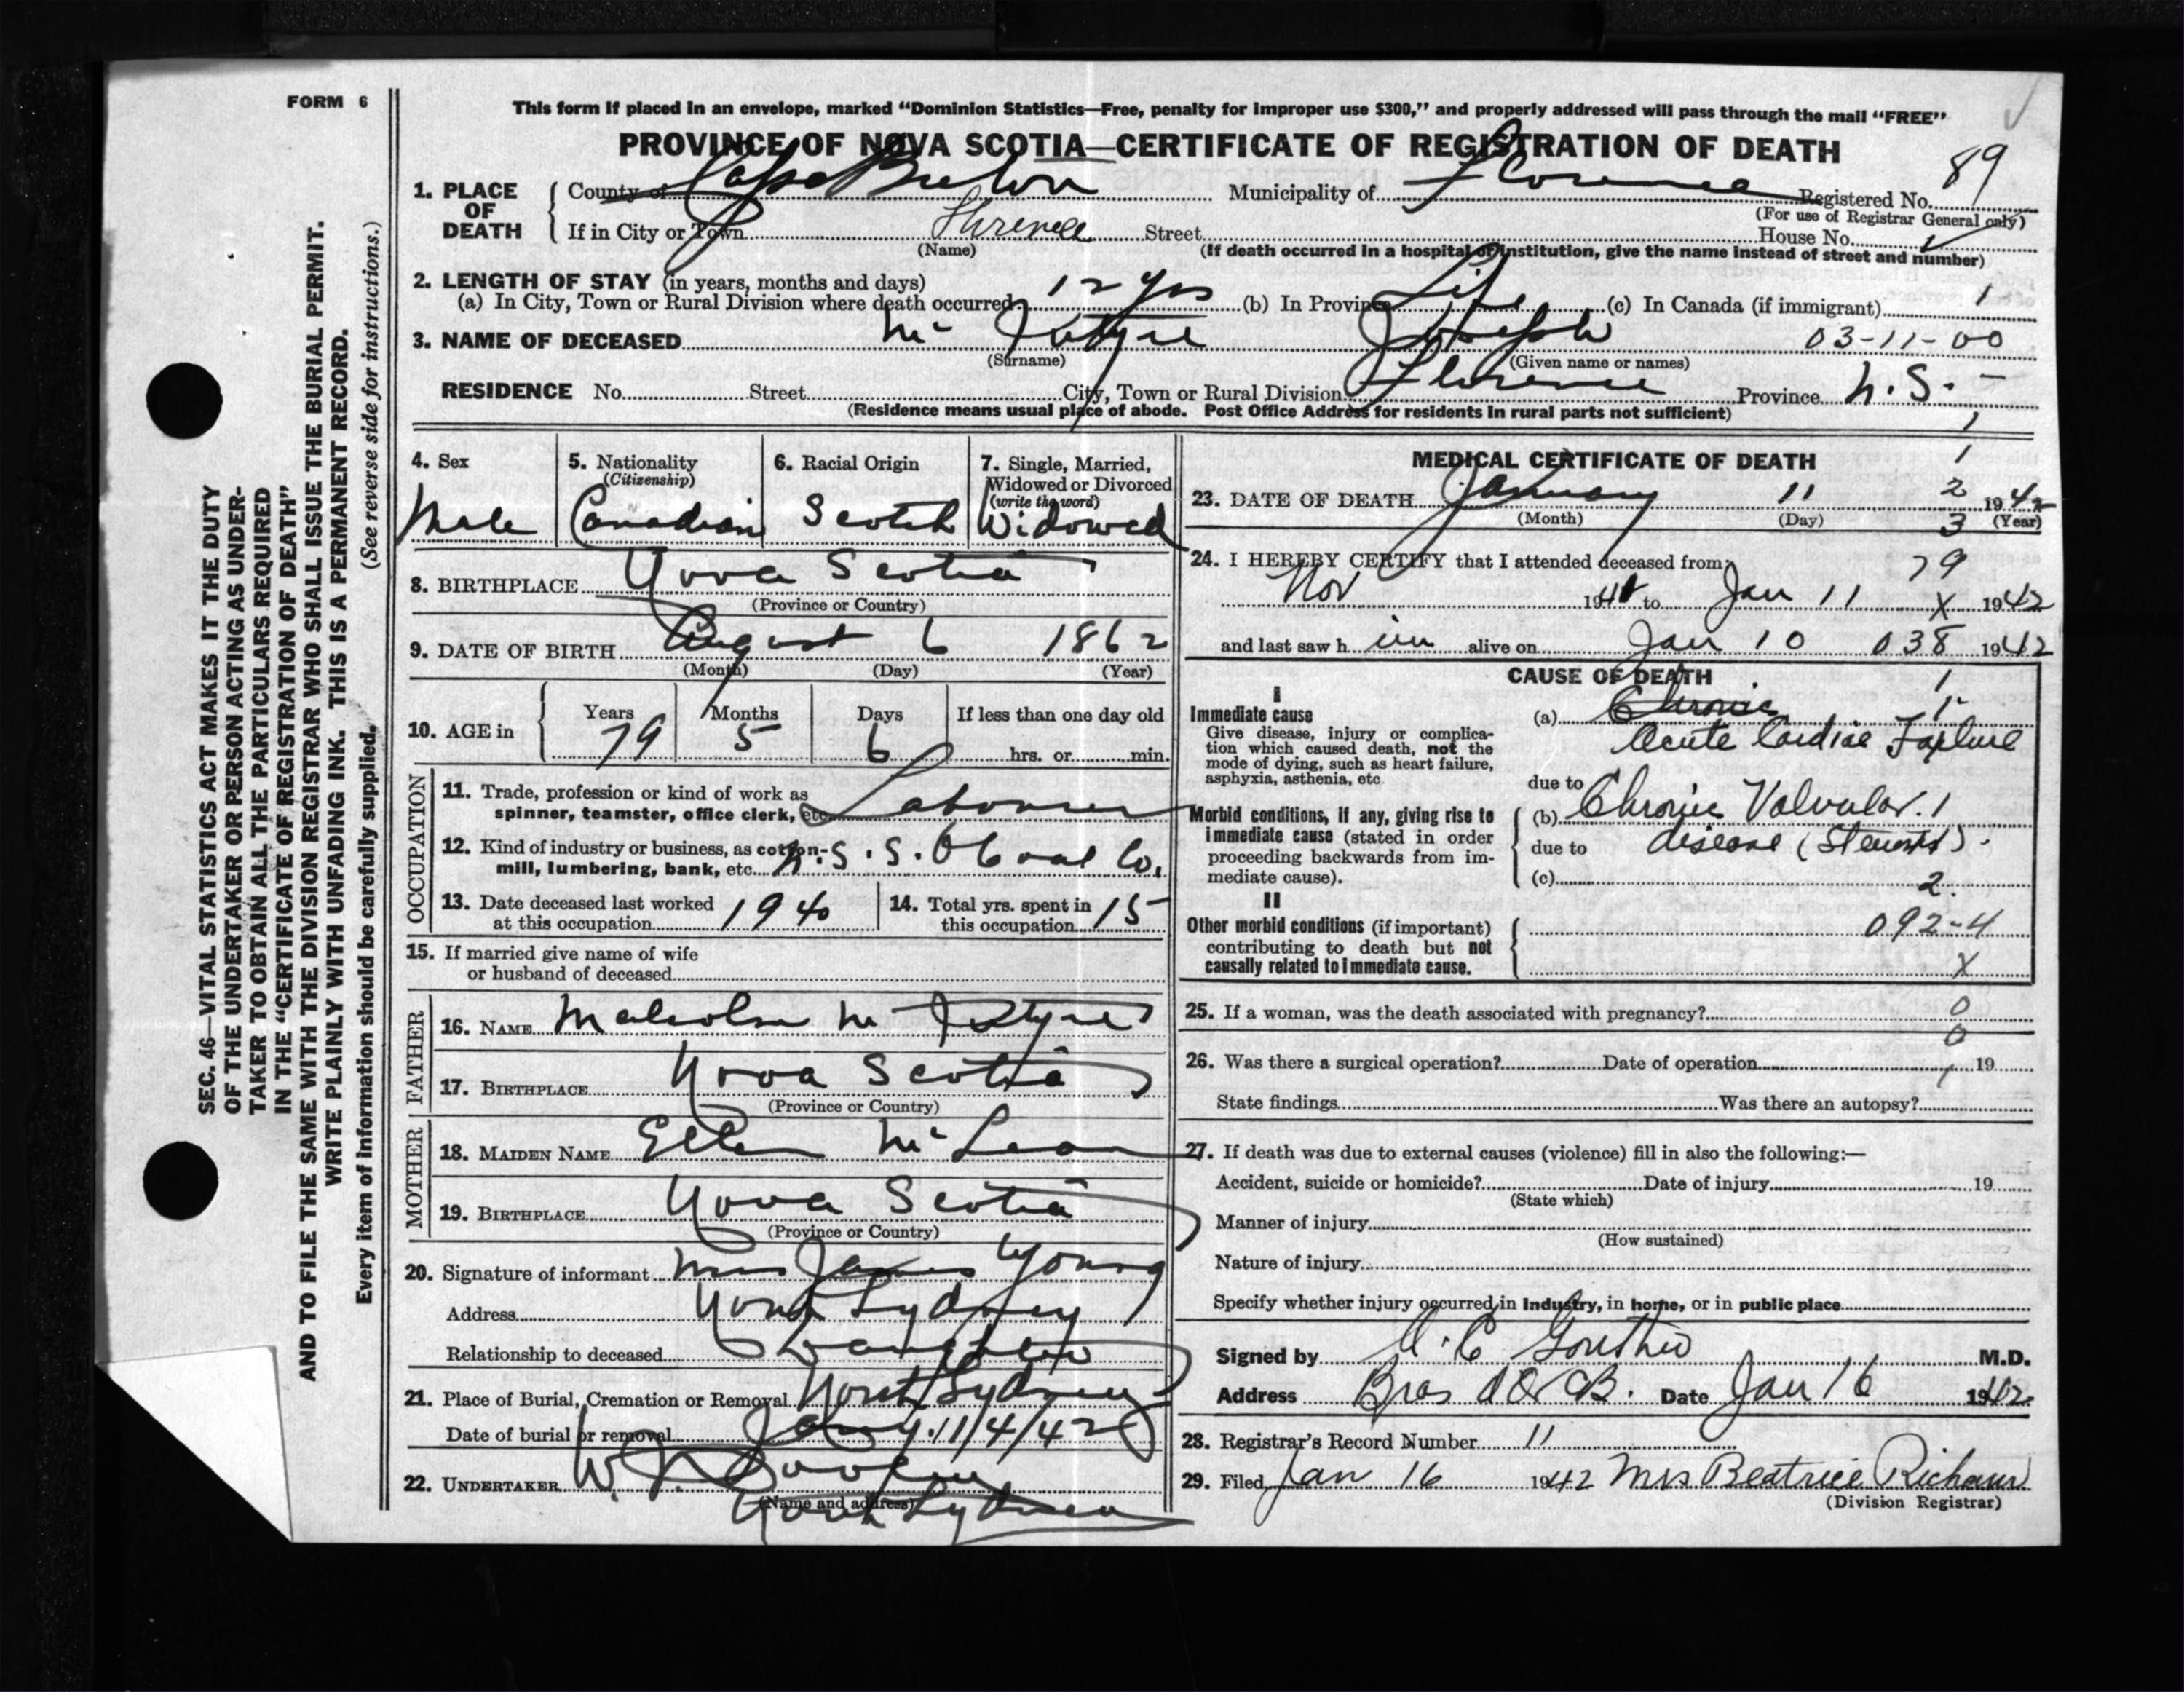 FORM 6
This form if placed in an envelope, marked “Dominion Statistics—Free, penalty for improper use $300,” and properly addressed will pass through the mail “FREE”
PROVINCE OF NOVA SCOTIA—CERTIFICATE OF REGISTRATION OF DEATH
89
1. PLACE OF DEATH
County of Cape Breton Municipality of Florence Registered No.
(For use of Registrar General only)
If in City or Town Florence Street House No.
(Name) (If death occurred in a hospital or institution, give the name instead of street and number)
2. LENGTH OF STAY (in years, months and days)
(a) In City, Town or Rural Division where death occurred 12 yrs (b) In Province Life (c) In Canada (if immigrant) 1
3. NAME OF DECEASED Mc Intyre Joseph 03-11-00
(Surname) (Given name or names)
RESIDENCE No. Street City, Town or Rural Division Florence Province N.S. –
(Residence means usual place of abode. Post Office Address for residents in rural parts not sufficient)
1
4. Sex Male
5. Nationality (Citizenship) Canadian
6. Racial Origin Scotch
7. Single, Married, Widowed or Divorced (write the word) Widowed
8. BIRTHPLACE Nova Scotia
(Province or Country)
9. DATE OF BIRTH August 6 1862
(Month) (Day) (Year)
10. AGE in Years 79 Months 5 Days 6 If less than one day old hrs. or min.
OCCUPATION
11. Trade, profession or kind of work as spinner, teamster, office clerk, etc. Labourer
12. Kind of industry or business, as cotton-mill, lumbering, bank, etc. N.S.S. & Coal Co.
13. Date deceased last worked at this occupation 1940
14. Total yrs. spent in this occupation 15
15. If married give name of wife or husband of deceased
FATHER
16. NAME Malcolm Mc Intyre
17. BIRTHPLACE Nova Scotia
(Province or Country)
MOTHER
18. MAIDEN NAME Ellen Mc Lean
19. BIRTHPLACE Nova Scotia
(Province or Country)
20. Signature of informant Mrs James Young
Address North Sydney
Relationship to deceased Daughter
21. Place of Burial, Cremation or Removal North Sydney
Date of burial or removal
22. UNDERTAKER W. J. Dooley
(Name and address)
North Sydney
MEDICAL CERTIFICATE OF DEATH
1
23. DATE OF DEATH January 11 2 1942
(Month) (Day) 3 (Year)
24. I HEREBY CERTIFY that I attended deceased from: 79
Nov 1941 to Jan 11 X 1942
and last saw h im alive on Jan 10 038 1942
CAUSE OF DEATH
1
I
Immediate cause
Give disease, injury or complication which caused death, not the mode of dying, such as heart failure, asphyxia, asthenia, etc
(a) Chronic 1
Acute Cardiac Failure
due to
Morbid conditions, if any, giving rise to immediate cause (stated in order proceeding backwards from immediate cause).
(b) Chronic Valvular. 1
due to disease (Stenosis).
(c) 2.
II
Other morbid conditions (if important) contributing to death but not causally related to immediate cause.
092-4
X
25. If a woman, was the death associated with pregnancy? 0
0
26. Was there a surgical operation? Date of operation 19
1
State findings Was there an autopsy?
27. If death was due to external causes (violence) fill in also the following:—
Accident, suicide or homicide? Date of injury 19
(State which)
Manner of injury
(How sustained)
Nature of injury
Specify whether injury occurred in Industry, in home, or in public place
Signed by M.D.
Address Bras d'Or CB. Date Jan 16 1942
28. Registrar's Record Number 11
29. Filed Jan 16 1942 Mrs Beatrice
(Division Registrar)
SEC. 46—VITAL STATISTICS ACT MAKES IT THE DUTY
OF THE UNDERTAKER OR PERSON ACTING AS UNDER-
TAKER TO OBTAIN ALL THE PARTICULARS REQUIRED
IN THE “CERTIFICATE OF REGISTRATION OF DEATH”
AND TO FILE THE SAME WITH THE DIVISION REGISTRAR WHO SHALL ISSUE THE BURIAL PERMIT.
WRITE PLAINLY WITH UNFADING INK. THIS IS A PERMANENT RECORD.
Every item of information should be carefully supplied. (See reverse side for instructions.)